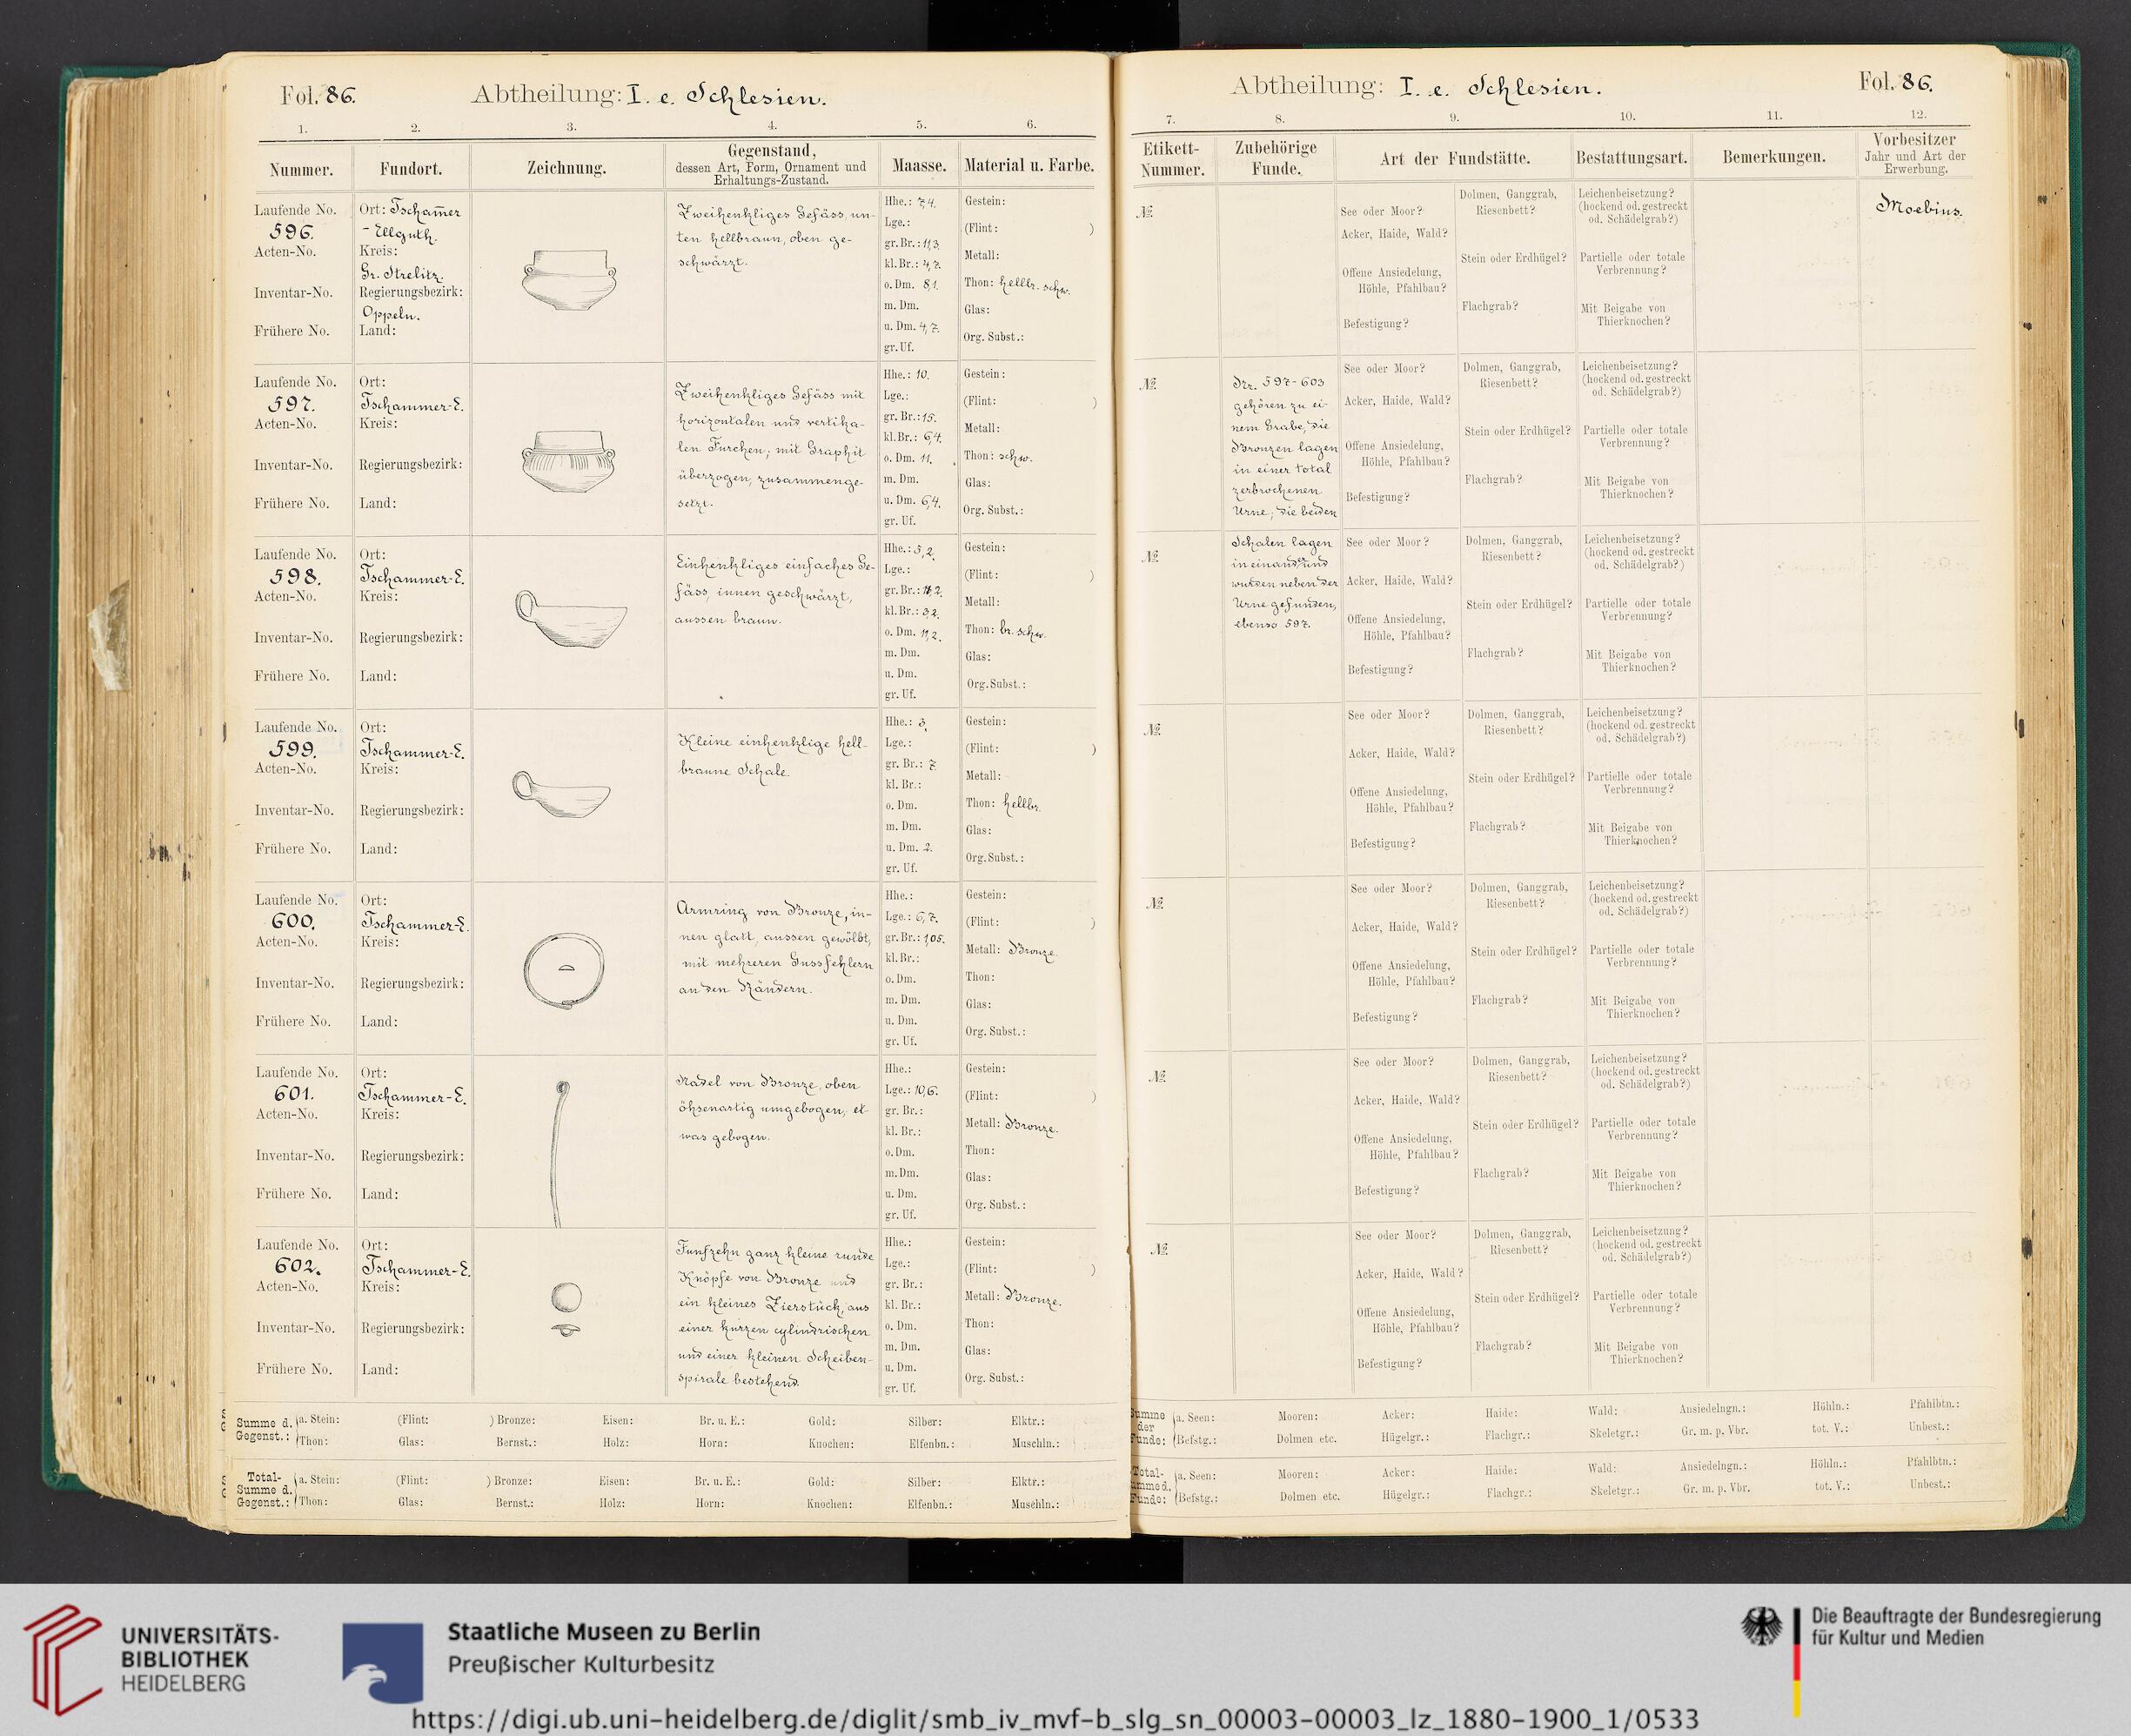 Fol. 86. Abtheilung: I. e. Schlesien.
1. 2. 3. 4. 5. 6.
Nummer. Fundort. Zeichnung. Gegenstand, dessen Art, Form, Ornament und Erhaltungs-Zustand. Maasse. Material u. Farbe.
Laufende No. 596.
Acten-No.
Inventar-No.
Frühere No.
Ort: Tscham̄er
- Ellguth.
Kreis:
Gr. Strelitz.
Regierungsbezirk:
Oppeln.
Land:
Zweihenkliges Gefäss, un-
ten hellbraun, oben ge-
schwärzt.
Hhe.: 7,4.
Lge.:
gr. Br.: 11,3.
kl. Br.: 4,7.
o. Dm. 8,1.
m. Dm.
u. Dm. 4,7.
gr. Uf.
Gestein:
(Flint: )
Metall:
Thon: hellbr. schw.
Glas:
Org. Subst.:
Laufende No. 597.
Acten-No.
Inventar-No.
Frühere No.
Ort:
Tschammer-E.
Kreis:
Regierungsbezirk:
Land:
Zweihenkliges Gefäss mit
horizontalen und vertika-
len Furchen; mit Graphit
überzogen, zusammenge-
setzt.
Hhe.: 10.
Lge.:
gr. Br.: 15.
kl. Br.: 6,4.
o. Dm. 11.
m. Dm.
u. Dm. 6,4.
gr. Uf.
Gestein:
(Flint: )
Metall:
Thon: schw.
Glas:
Org. Subst.:
Laufende No. 598.
Acten-No.
Inventar-No.
Frühere No.
Ort:
Tschammer-E.
Kreis:
Regierungsbezirk:
Land:
Einhenkliges einfaches Ge-
fäss, innen geschwärzt,
aussen braun.
Hhe.: 5,2.
Lge.:
gr. Br.:
kl. Br.: 3,2.
o. Dm. 11,2.
m. Dm.
u. Dm.
gr. Uf.
Gestein:
(Flint: )
Metall:
Thon: br. schw.
Glas:
Org. Subst.:
Laufende No. 599.
Acten-No.
Inventar-No.
Frühere No.
Ort:
Tschammer-E.
Kreis:
Regierungsbezirk:
Land:
Kleine einhenklige hell-
braune Schale.
Hhe.: 3.
Lge.:
gr. Br.: 7.
kl. Br.:
o. Dm.
m. Dm.
u. Dm. 2.
gr. Uf.
Gestein:
(Flint: )
Metall:
Thon: hellbr.
Glas:
Org. Subst.:
Laufende No. 600.
Acten-No.
Inventar-No.
Frühere No.
Ort:
Tschammer-E.
Kreis:
Regierungsbezirk:
Land:
Armring von Bronze, in-
nen glatt, aussen gewölbt,
mit mehreren Gussfehlern
an den Rändern.
Hhe.:
Lge.: 6,7.
gr. Br.: 1,05.
kl. Br.:
o. Dm.
m. Dm.
u. Dm.
gr. Uf.
Gestein:
(Flint: )
Metall: Bronze.
Thon:
Glas:
Org. Subst.:
Laufende No. 601.
Acten-No.
Inventar-No.
Frühere No.
Ort:
Tschammer-E.
Kreis:
Regierungsbezirk:
Land:
Nadel von Bronze, oben
öhsenartig umgebogen, et-
was gebogen.
Hhe.:
Lge.: 10,6.
gr. Br.:
kl. Br.:
o. Dm.
m. Dm.
u. Dm.
gr. Uf.
Gestein:
(Flint: )
Metall: Bronze.
Thon:
Glas:
Org. Subst.:
Laufende No. 602.
Acten-No.
Inventar-No.
Frühere No.
Ort:
Tschammer-E.
Kreis:
Regierungsbezirk:
Land:
Funfzehn ganz kleine runde
Knöpfe von Bronze und
ein kleines Zierstück, aus
einer kurzen cylindrischen
und einer kleinen Scheiben-
spirale bestehend.
Hhe.:
Lge.:
gr. Br.:
kl. Br.:
o. Dm.
m. Dm.
u. Dm.
gr. Uf.
Gestein:
(Flint: )
Metall: Bronze.
Thon:
Glas:
Org. Subst.:
Summe d. Gegenst.: a. Stein: (Flint: ) Bronze: Eisen: Br. u. E.: Gold: Silber: Elktr.:
Thon: Glas: Bernst.: Holz: Horn: Knochen: Elfenbn.: Muschln.:
Total-Summe d. Gegenst.: a. Stein: (Flint: ) Bronze: Eisen: Br. u. E.: Gold: Silber: Elktr.:
Thon: Glas: Bernst.: Holz: Horn: Knochen: Elfenbn.: Muschln.:
Abtheilung: I. e. Schlesien. Fol. 86.
7. 8. 9. 10. 11. 12.
Etikett-Nummer. Zubehörige Funde. Art der Fundstätte. Bestattungsart. Bemerkungen. Vorbesitzer Jahr und Art der Erwerbung.
№
See oder Moor?
Acker, Haide, Wald?
Offene Ansiedelung,
Höhle, Pfahlbau?
Befestigung?
Dolmen, Ganggrab,
Riesenbett?
Stein oder Erdhügel?
Flachgrab?
Leichenbeisetzung?
(hockend od. gestreckt
od. Schädelgrab?)
Partielle oder totale
Verbrennung?
Mit Beigabe von
Thierknochen?
Moebius.
№
Nr. 597-603
gehören zu ei-
nem Grabe, die
Bronzen lagen
in einer total
zerbrochenen
Urne; die beiden
See oder Moor?
Acker, Haide, Wald?
Offene Ansiedelung,
Höhle, Pfahlbau?
Befestigung?
Dolmen, Ganggrab,
Riesenbett?
Stein oder Erdhügel?
Flachgrab?
Leichenbeisetzung?
(hockend od. gestreckt
od. Schädelgrab?)
Partielle oder totale
Verbrennung?
Mit Beigabe von
Thierknochen?
№
Schalen lagen
in einander und
wurden neben der
Urne gefunden,
ebenso 597.
See oder Moor?
Acker, Haide, Wald?
Offene Ansiedelung,
Höhle, Pfahlbau?
Befestigung?
Dolmen, Ganggrab,
Riesenbett?
Stein oder Erdhügel?
Flachgrab?
Leichenbeisetzung?
(hockend od. gestreckt
od. Schädelgrab?)
Partielle oder totale
Verbrennung?
Mit Beigabe von
Thierknochen?
№
See oder Moor?
Acker, Haide, Wald?
Offene Ansiedelung,
Höhle, Pfahlbau?
Befestigung?
Dolmen, Ganggrab,
Riesenbett?
Stein oder Erdhügel?
Flachgrab?
Leichenbeisetzung?
(hockend od. gestreckt
od. Schädelgrab?)
Partielle oder totale
Verbrennung?
Mit Beigabe von
Thierknochen?
№
See oder Moor?
Acker, Haide, Wald?
Offene Ansiedelung,
Höhle, Pfahlbau?
Befestigung?
Dolmen, Ganggrab,
Riesenbett?
Stein oder Erdhügel?
Flachgrab?
Leichenbeisetzung?
(hockend od. gestreckt
od. Schädelgrab?)
Partielle oder totale
Verbrennung?
Mit Beigabe von
Thierknochen?
№
See oder Moor?
Acker, Haide, Wald?
Offene Ansiedelung,
Höhle, Pfahlbau?
Befestigung?
Dolmen, Ganggrab,
Riesenbett?
Stein oder Erdhügel?
Flachgrab?
Leichenbeisetzung?
(hockend od. gestreckt
od. Schädelgrab?)
Partielle oder totale
Verbrennung?
Mit Beigabe von
Thierknochen?
№
See oder Moor?
Acker, Haide, Wald?
Offene Ansiedelung,
Höhle, Pfahlbau?
Befestigung?
Dolmen, Ganggrab,
Riesenbett?
Stein oder Erdhügel?
Flachgrab?
Leichenbeisetzung?
(hockend od. gestreckt
od. Schädelgrab?)
Partielle oder totale
Verbrennung?
Mit Beigabe von
Thierknochen?
Summe der Funde: a. Seen: Mooren: Acker: Haide: Wald: Ansiedelngn.: Höhln.: Pfahlbtn.:
Befstg.: Dolmen etc. Hügelgr.: Flachgr.: Skeletgr.: Gr. m. p. Vbr. tot. V.: Unbest.:
Total-Summe d. Funde: a. Seen: Mooren: Acker: Haide: Wald: Ansiedelngn.: Höhln.: Pfahlbtn.:
Befstg.: Dolmen etc. Hügelgr.: Flachgr.: Skeletgr.: Gr. m. p. Vbr. tot. V.: Unbest.:
UNIVERSITÄTS-
BIBLIOTHEK
HEIDELBERG
Staatliche Museen zu Berlin
Preußischer Kulturbesitz
Die Beauftragte der Bundesregierung
für Kultur und Medien
https://digi.ub.uni-heidelberg.de/diglit/smb_iv_mvf-b_slg_sn_00003-00003_lz_1880-1900_1/0533